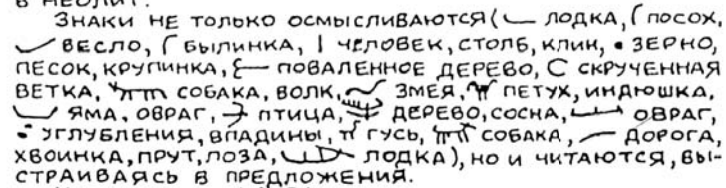 В НЕОЛИТ.
ЗНАКИ НЕ ТОЛЬКО ОСМЫСЛИВАЮТСЯ ( ЛОДКА, ПОСОХ,
ВЕСЛО, БЫЛИНКА, ЧЕЛОВЕК, СТОЛБ, КЛИН, • ЗЕРНО,
ПЕСОК, КРУПИНКА, ПОВАЛЕННОЕ ДЕРЕВО, СКРУЧЕННАЯ
ВЕТКА, СОБАКА, ВОЛК, ЗМЕЯ, ПЕТУХ, ИНДЮШКА,
ЯМА, ОВРАГ, ПТИЦА, ДЕРЕВО, СОСНА, ОВРАГ,
• УГЛУБЛЕНИЯ, ВПАДИНЫ, ГУСЬ, СОБАКА, ДОРОГА,
ХВОИНКА, ПРУТ, ЛОЗА, ЛОДКА), НО И ЧИТАЮТСЯ, ВЫ-
СТРАИВАЯСЬ В ПРЕДЛОЖЕНИЯ.